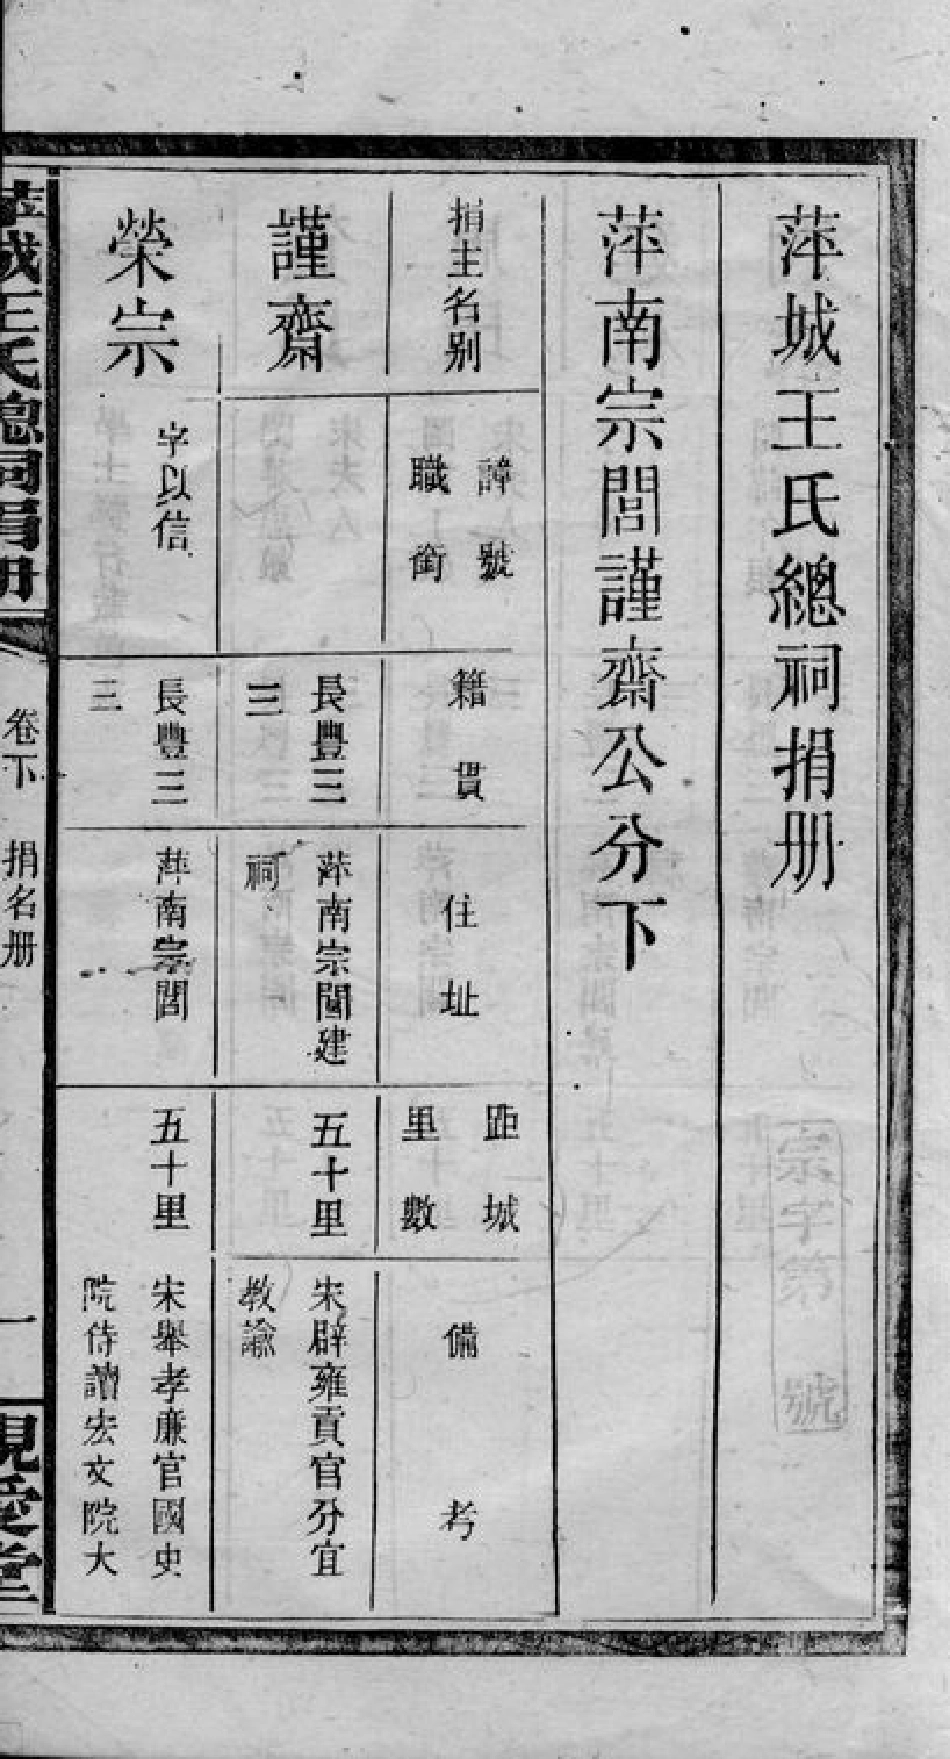 萍城王氏總祠捐册
宗字第　號
萍南宗閭謹齋公分下
捐主名别
諱號
職銜
籍貫
住址
距城
里數
備考
謹齋
長豐三
三
萍南宗閭建
祠
五十里
宋辟雍貢官分宜
教諭
榮宗
字以信
長豐三
三
萍南宗閭
五十里
宋舉孝廉官國史
院侍讀宏文院大
萍城王氏總祠捐册
卷下
捐名册
一
堂